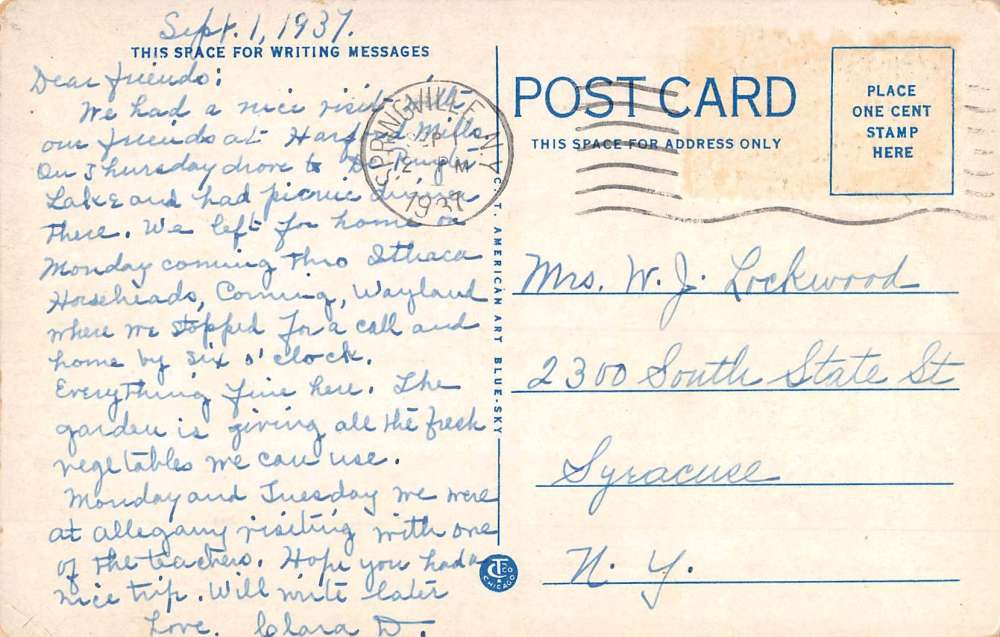 Sept. 1, 1937.
THIS SPACE FOR WRITING MESSAGES
Dear friends:
We had a nice visit with
our friends at Harford Mills.
On Thursday drove to De Ruyter
Lake and had picnic
there. We left for home on
Monday coming thro Ithaca
Horseheads, Corning, Wayland
where we stopped for a call and
home by six o'clock.
Everything fine here. The
garden is giving all the fresh
vegetables we can use.
Monday and Tuesday we were
at Allegany visiting with one
of the teachers. Hope you had a
nice trip. Will write later
Love. Clara D.
SPRINGVILLE N.Y.
SEP
2
PM
1937
C. T. AMERICAN ART BLUE-SKY
CT CO CHICAGO
POST CARD
THIS SPACE FOR ADDRESS ONLY
PLACE
ONE CENT
STAMP
HERE
Mrs. W. J. Lockwood
2300 South State St
Syracuse
N. Y.